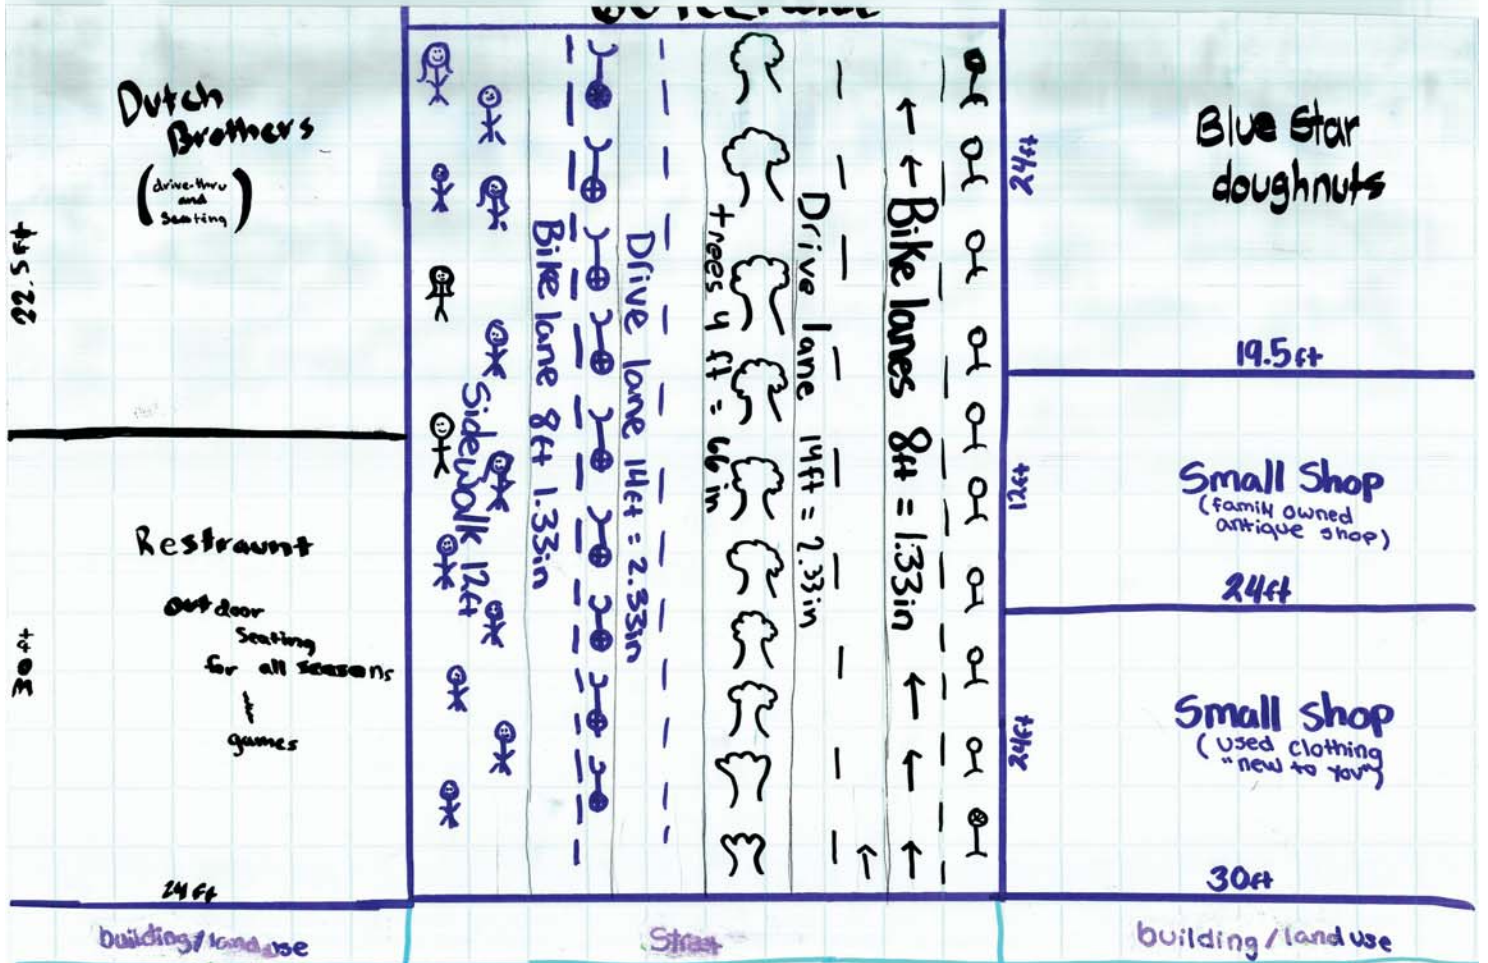 Dutch
Brothers
(drive-thru
and
Seating)
22.5ft
Restraunt
outdoor
Seating
for all seasons
games
30ft
24ft
building/land use
Sidewalk 12ft
Bike lane 8ft 1.33in
Drive lane 14ft = 2.33in
trees 4 ft = 66in
Drive lane 14ft = 2.33in
Bike lanes 8ft = 1.33in
Street
24ft
Blue Star
doughnuts
19.5ft
12ft
Small Shop
(famill owned
antique shop)
24ft
24ft
Small Shop
(used clothing
"new to you")
30ft
building/land use